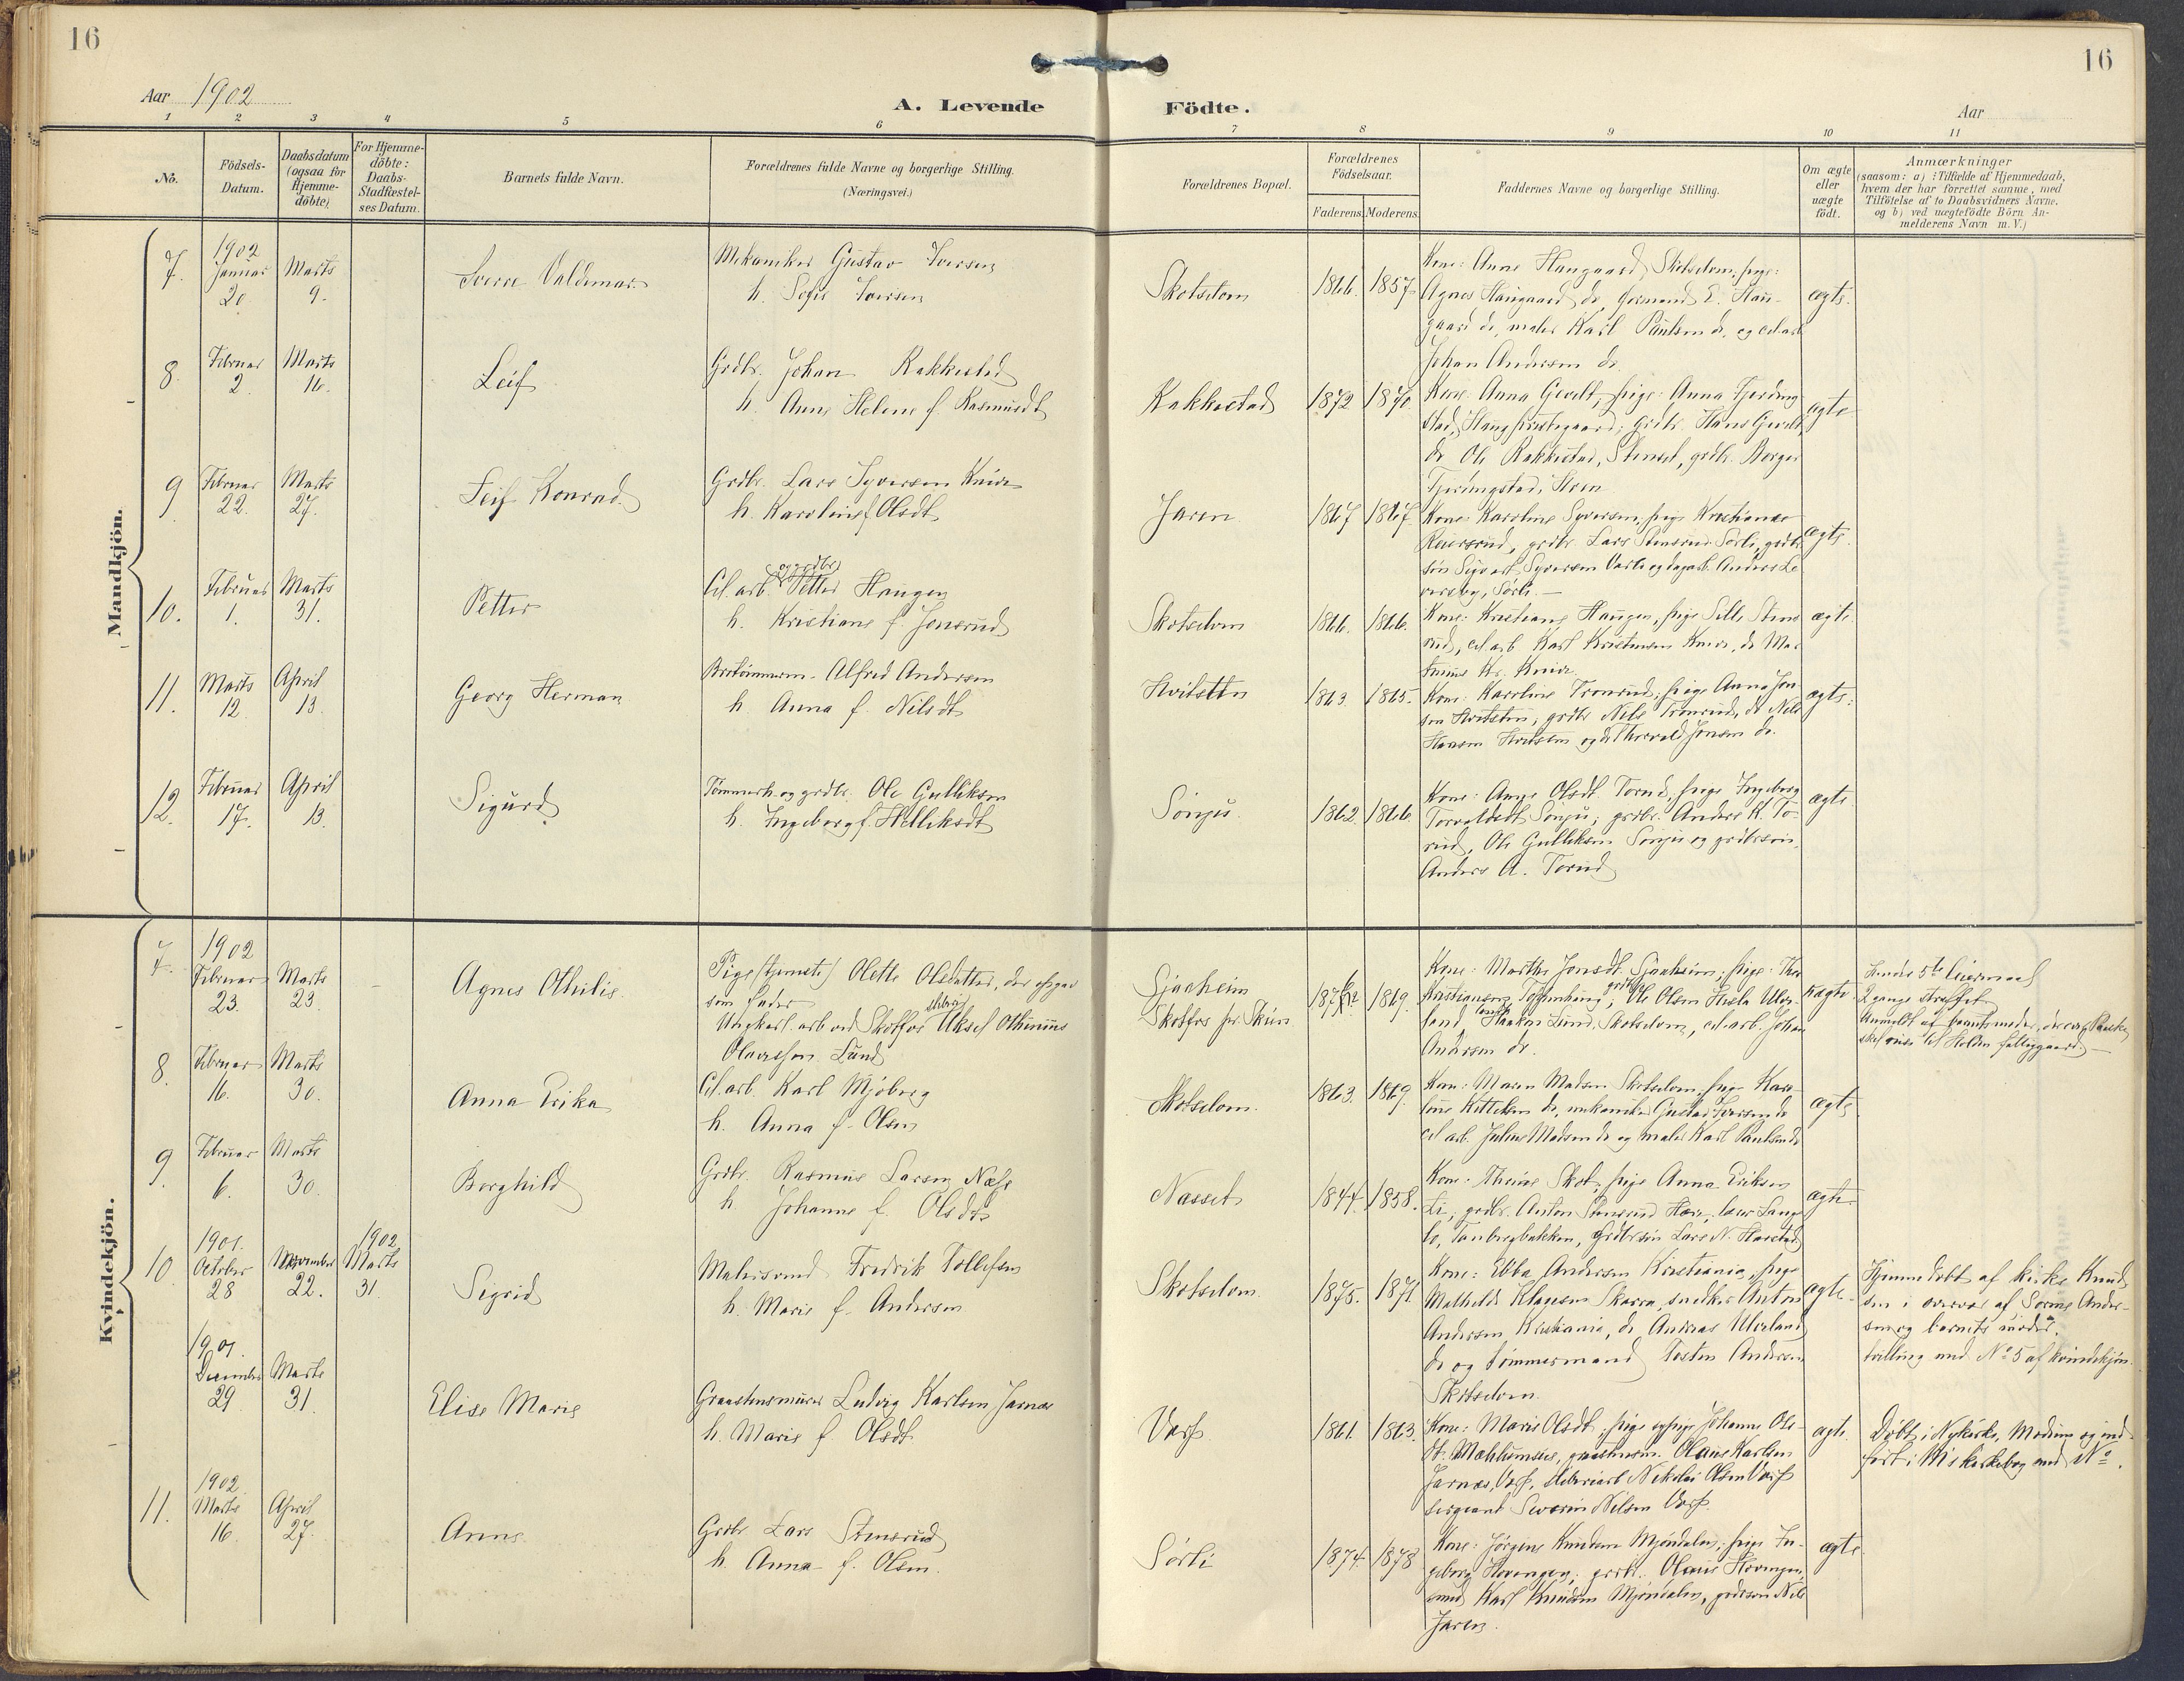 16
16
Aar 1902
A. Levende
Födte.
Aar
1 2 3 4 5 6 7 8 9 10 11
No.
Födsels-
Datum.
Daabsdatum
(ogsaa for
Hjemme-
döbte).
For Hjemme-
döbte:
Daabs-
Stadfæstel-
ses Datum.
Barnets fulde Navn.
Forældrenes fulde Navne og borgerlige Stilling.
(Næringsvei.)
Forældrenes Bopæl.
Forældrenes
Födselsaar.
Faderens.
Moderens.
Faddernes Navne og borgerlige Stilling.
Om ægte
eller
uægte
födt.
Anmærkninger
(saasom: a) i Tilfælde af Hjemmedaab,
hvem der har forrettet samme, med
Tilföielse af to Daabsvidners Navne.
og b) ved uægtefödte Börn An-
melderens Navn m.V.)
Mandkjön.
7.
1902
Januar
20
Marts
9.
Sverre Valdemar
Mekaniker Gustav Iversen
h. Sofie Iversen
Skotselven
1866. 1857.
Kone: Anne Haugaard, Skotselven, pige:
Agnes Haugaard ds, formand E. Hau-
gaard ds, maler Karl Paulsen ds, og cel.arb
Johan Andersen ds
ægte.
8.
Februar
2
Marts
16.
Leif
Grdbr. Johan Rakkestad
h. Anne Helene f. Rasmusdt
Rakkestad
1872 1870.
Kone: Anna Gevelt, pige: Anna Fjerding
stad, Haug prestegaard; grdbr. Hans Gevelt
ds Ole Rakkestad, Stenset, grdbr. Borger
ægte
9.
Februar
22.
Marts
27.
Leif Konrad.
Grdbr. Lars Syversen Knive
h. Karoline f. Olsdt
Jaren
1867 1867.
Kone: Karoline Syversen, pige Kristianse
grdbr. Lars Stensrud Sørli, grdbr
søn Sigvart Syversen Varlo og dagarb. Anders Le
Sørli.—
ægte.
10.
Februar
1.
Marts
31.
Petter
og grdbr
Cel. arb. Petter Haugen
h. Kristiane f. Jonsrud
Skotselven
1866. 1866.
Kone: Kristiane Haugen, pige Sille Stens
rud, cel.arb Karl Kristensen Knive, ds Mar
Kr. Knive.
ægte.
11.
Marts
12.
April
13.
Georg Herman
Alfred Andersen
h. Anna f. Nilsdt
Hvitstten
1863. 1865.
Kone: Karoline Tronrud; pige Anna Jon
sen Hvitsten, grdbr Nils Tronrud, ds Nils
Hansen Hvitsten og ds Thorvald Jonsen ds.
ægte.
12.
Februar
17.
April
13.
Sigurd
Tømmerh. og grdbr. Ole Gulliksen
h. Ingeborg f. Helliksdt
Sønju.
1862. 1866.
Kone: Anne Olsdt. Torud, pige Ingeborg
Torvaldsdt Sønju; grdbr. Anders K. To-
rud, Ole Gulliksen Sønju og grdbrsøn,
Anders A. Torud
ægte
Kvindekjön.
7.
1902
Februar
23
Marts
23
Agnes Othilie.
Pige (tjeneste) Olette Olsdatter, der opgav
som fader
Ungkarl. arb ved Skotfos Aksel Othinius
Olavessen Lund
Sjaaheim
Skotfos pr. Skien
1869.
Kone: Marthe Jonsdt. Sjaaheim; pige: Thea
Kristiansen, Ole Olsen Horsla Ulve-
land, Haakon Lund, Skotselven, cel. arb. Johan
Andersen ds.
uægte
Hendes 5te leiermaal
2 gange straffet
Anmeldt af barnets moder,
8.
Februar
16.
Marts
30.
Anna Erika
Cel. arb. Karl Mjøberg
h. Anna f. Olsen
Skotselven.
1863. 1869.
Kone: Maren Madsen Skotselven, pige Karo-
line Kittelsen ds, mekaniker Gustav Iversen ds
cel arb. Julius Madsen ds og maler Karl Paulsen ds
ægte
9.
Februar
6.
Marts
30.
Borghild
Grdbr. Rasmus Larsen Næse
h. Johanne f. Olsdt
Nasset
1844. 1858.
Kone: Skot, pige Anna Eriksen
Li, grdbr. Anton Stensrud Horn,
Tandbergbakken, Grdbrsøn Lars N. Harstad
ægte.
10.
1901.
October
28
November
22.
1902.
Marts
31.
Sigrid
Malersvend Fredrik Tollefsen
h. Marie f. Andersen
Skotselven.
1875. 1871.
Kone: Ebba Andersen Kristiania, pige
Mathilde Klagesen Skarra, snedker Anton
Andersen, Kristiania, ds Andreas Ulveland
ds og tømmermand Tosten Andersen
Skotselven.
ægte.
Hjemmedøbt af kirkes. Knud
sen i overvær af Ander-
sen og barnets moder.
tvilling med No 5 af kvindekjøn.
1901.
December
29
Marts
31.
Elise Marie
Graastensmurer Ludvig Karlsen Jarnæs
h. Marie f. Olsdt.
Varp
1861. 1863.
Kone: Marie Olsdt, pige Johanne Ols-
dt. Olaus Karlsen
Jarnæs, Varp, Nikolai Olsen Varp
sergeant Severin Nilsen Varp
ægte.
Døbt i Nykirke, Modum og ind
ført i M's kirkebog med No.
11.
1902.
Marts
16.
April
27.
Anne.
Grdbr Lars Stensrud
h. Anna f. Olsen.
Sørli
1874. 1878
Kone: Jørgine Knudsen Mjøndalen; pige In-
geborg Horengen, grdbr. Olaus Horengen,
Karl Knudsen Mjøndalen, grdbrsøn Nils
Jaren.
ægte